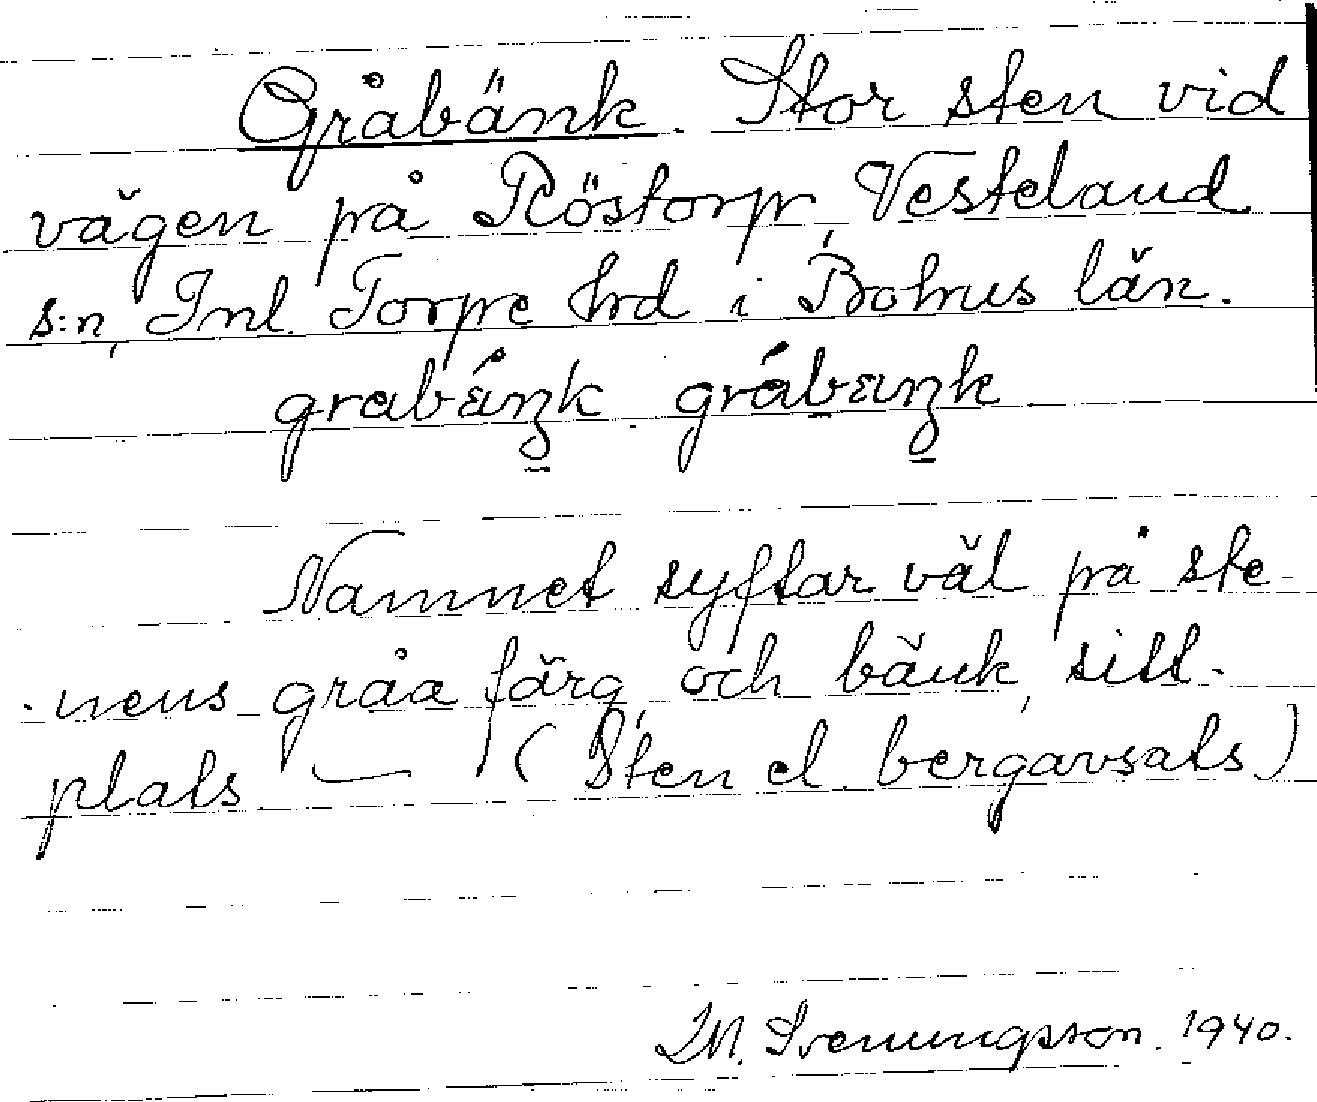 Gråbänk. Stor sten vid
vägen på Röstorp, Vesteland
s:n, Inl. Torpe hrd i Bohus län.
Namnet syftar väl på ste-
nens gråa färg och bänk, sitt-
plats — (Sten el. bergavsats)
M. Svenungsson. 1940.